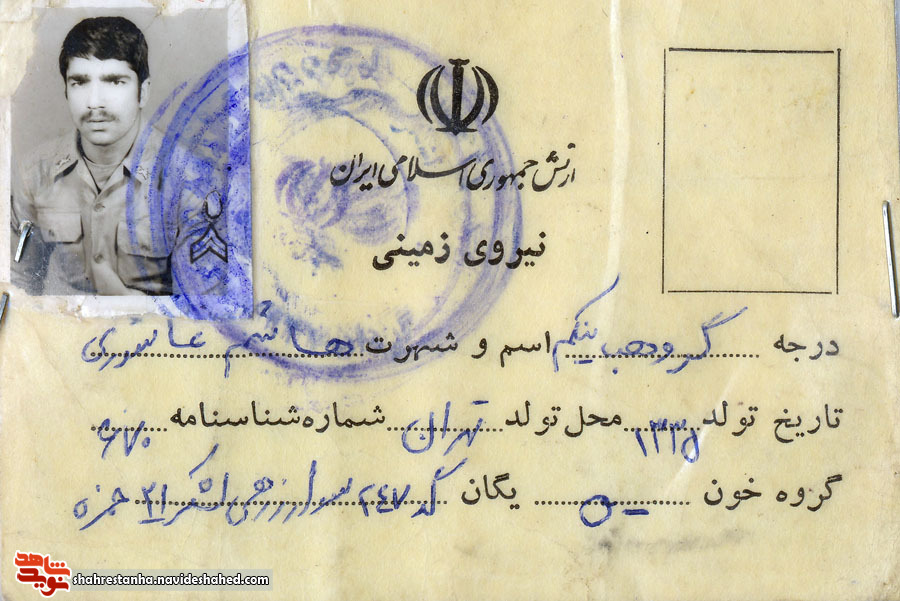 ارتش جمهوری اسلامی ایران
نیروی زمینی
درجه گروهبان یکم اسم و شهرت هاشم عاشوری
تاریخ تولد ۱۳۳۵ محل تولد تهران شماره شناسنامه
گروه خون یگان گد ۲۴۷ سوار زرهی لشکر ۲۱ حمزه
شاهد
نوید
shahrestanha.navideshahed.com